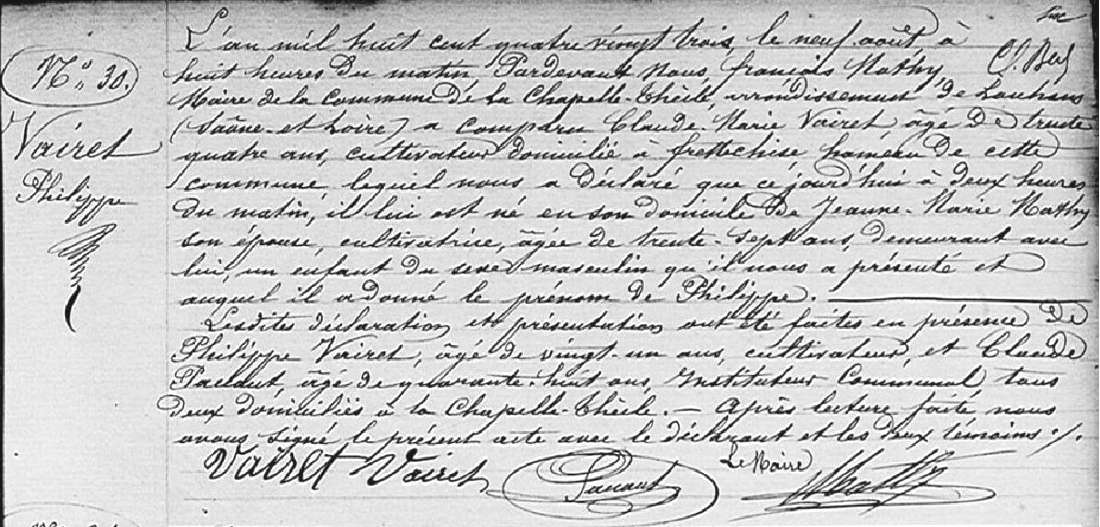 N° 30.
Vairet
Philippe
L'an mil huit cent quatre vingt trois, le neuf août à
huit heures du matin, Pardevant Nous, françois Mathy,
Maire de la Commune de La Chapelle-Thècle, arrondissement de Louhans
(Saône-et-Loire) a comparu Claude-Marie Vairet âgé de trente
quatre ans, cultivateur domicilié à frettechise hameau de cette
commune lequel nous a déclaré que ce jourd'hui à deux heures
du matin, il lui est né en son domicile de Jeanne-Marie Mathy
son épouse, cultivatrice, âgée de trente-sept ans, demeurant avec
lui, un enfant du sexe masculin qu'il nous a présenté et
auquel il a donné le prénom de Philippe.
Lesdites déclaration et présentation ont été faites en présence de
Philippe Vairet, âgé de vingt-un ans, cultivateur, et Claude
Pacaut, âgé de quarante-huit ans, Instituteur Communal tous
deux domiciliés à la Chapelle-Thècle. — Après lecture faite nous
avons signé le présent acte avec le déclarant et les deux témoins ./.
Vairet Vairet Pacaut Le Maire Mathy